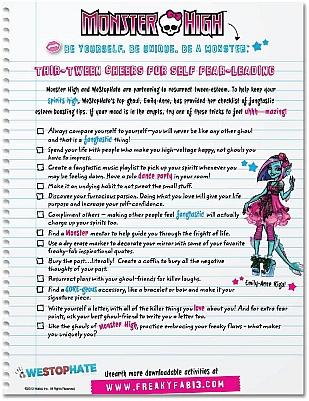 MONSTER HIGH
BE YOURSELF. BE UNIQUE. BE A MONSTER.
THIR-TWEEN CHEERS FOR SELF FEAR-LEADING
Monster High and WeStopHate are partnering to resurrect tween-esteem. To help keep your
spirits high, WeStopHate's top ghoul, Emily-Anne, has provided her checklist of fangtastic
esteem boosting tips. If your mood is in the crypts, try one of these tricks to feel uhhh—mazing!
Always compare yourself to yourself-you will never be like any other ghoul
and that is a fangtastic thing!
Spend your life with people who make you high-voltage happy, not ghouls you
have to impress.
Create a fangtastic music playlist to pick up your spirits whenever you
may be feeling down. Have a solo dance party in your room!
Make it an undying habit to not sweat the small stuff.
Discover your furrocious passion. Doing what you love will give your life
purpose and increase your self-confidence.
Compliment others – making other people feel fangtastic will actually
cheer up your spirits too.
Find a Monster mentor to help guide you through the frights of life.
Use a dry erase marker to decorate your mirror with some of your favorite
freaky-fab inspirational quotes.
Bury the past...Literally! Create a coffin to bury all the negative
thoughts of your past.
Resurrect plans with your ghoul-friends for killer laughs.
Find a GORE-geous accessory, like a bracelet or bow and make it your
signature piece.
Write yourself a letter, with all of the killer things you love about you! And for extra fear
points, ask your best ghoul-friend to write you a letter too.
Like the ghouls of Monster High, practice embracing your freaky flaws – what makes
you uniquely you?
Emily-Anne Rigal
WESTOPHATE
©2012 Mattel, Inc. All Rights Reserved.
Unearth more downloadable activities at
WWW.FREAKYFAB13.COM